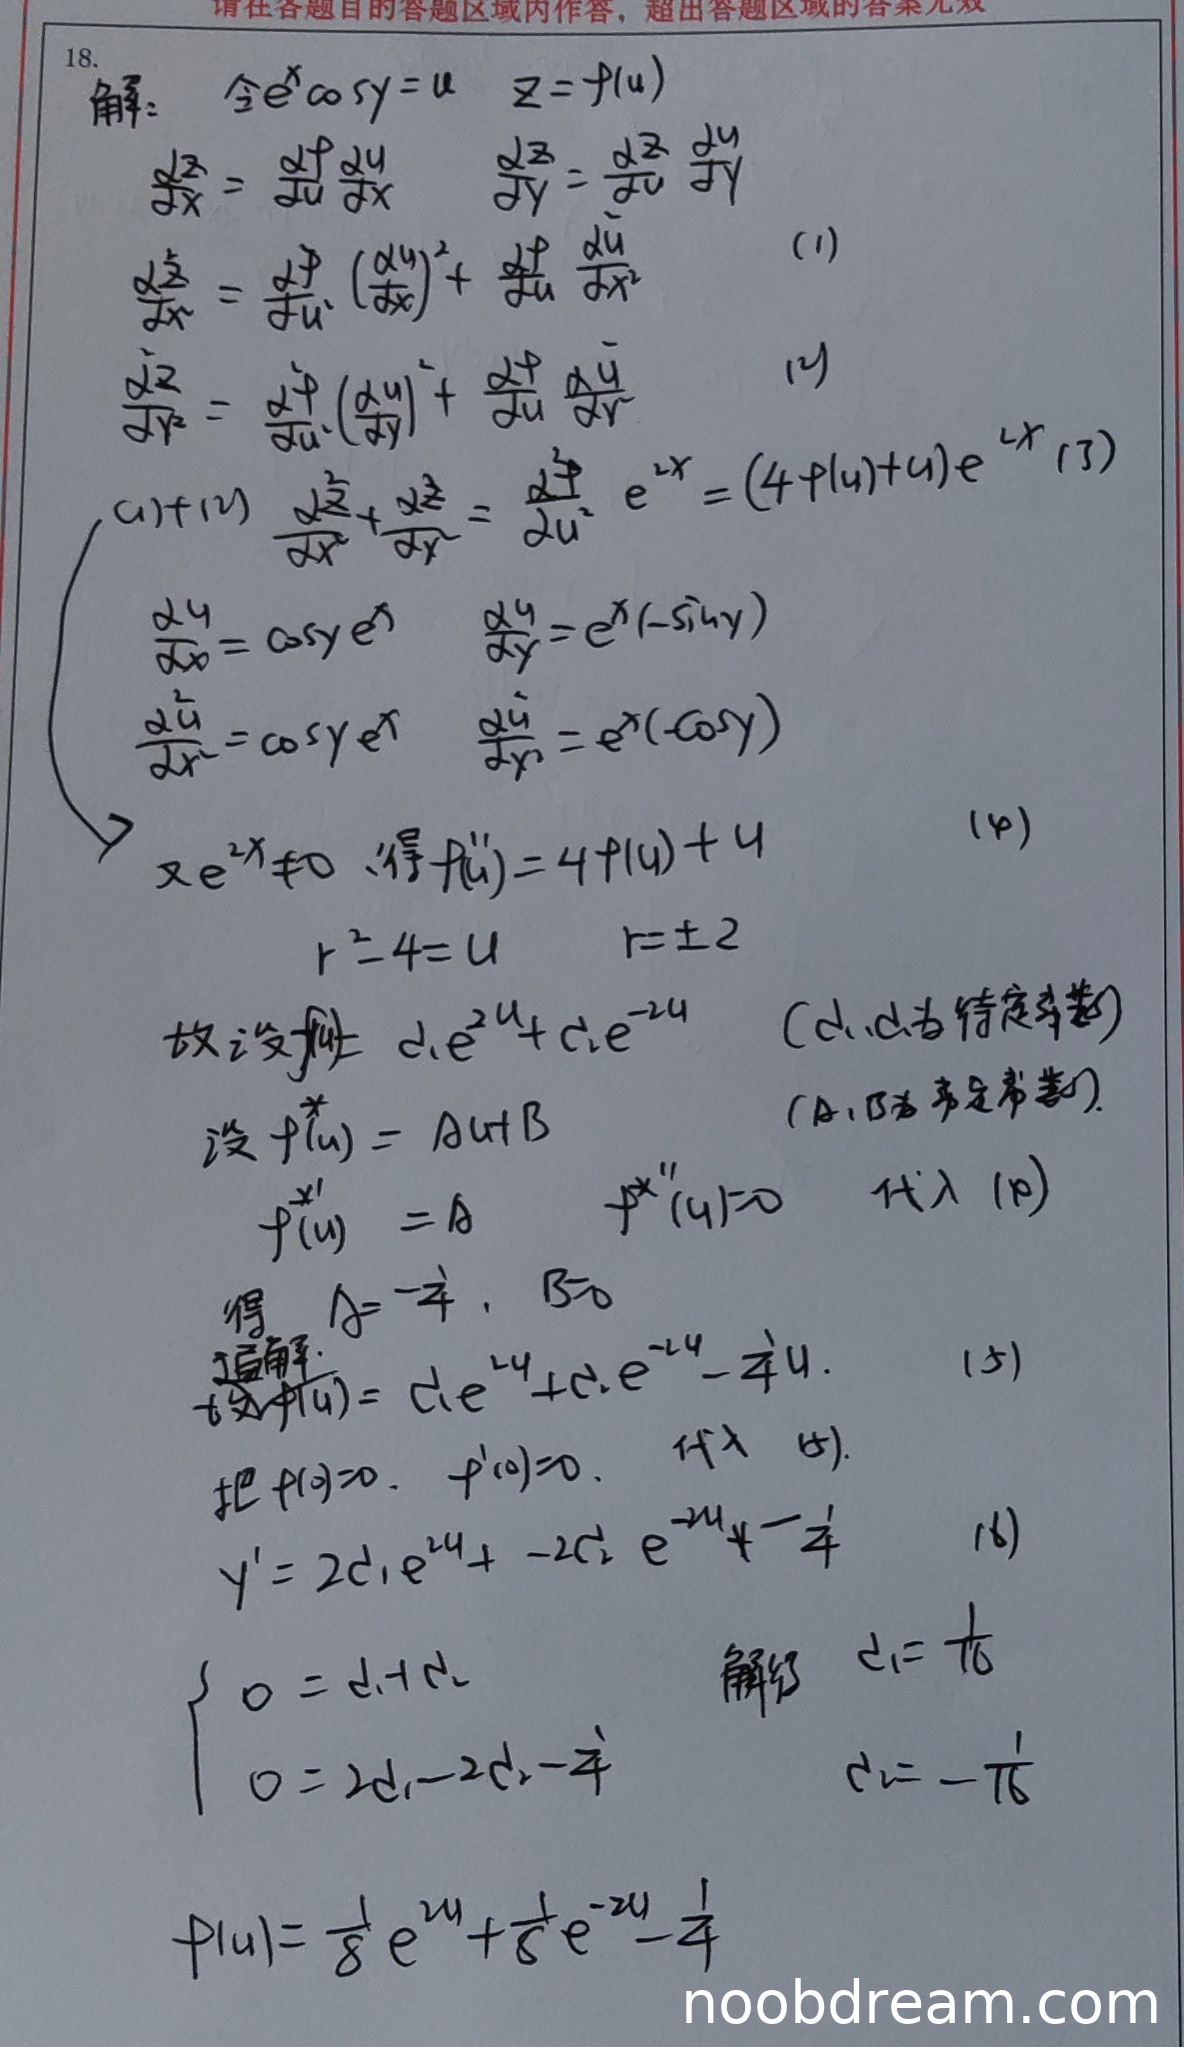 请在各题目的答题区域内作答，超出答题区域的答案无效
18.
解: 令e^x cosy=u z=f(u)
∂z/∂x = ∂f/∂u ∂u/∂x ∂z/∂y = ∂z/∂u ∂u/∂y
∂²z/∂x² = ∂²f/∂u² (∂u/∂x)² + ∂f/∂u ∂²u/∂x² (1)
∂²z/∂y² = ∂²f/∂u² (∂u/∂y)² + ∂f/∂u ∂²u/∂y² (2)
(1)+(2) ∂²z/∂x² + ∂²z/∂y² = ∂²f/∂u² e^2x = (4f(u)+u)e^2x (3)
∂u/∂x = cosy e^x ∂u/∂y = e^x(-siny)
∂²u/∂x² = cosy e^x ∂²u/∂y² = e^x(-cosy)
又e^2x≠0 得f''(u)=4f(u)+u (4)
r²-4=u r=±2
故设f(u)= C₁e^2u+C₂e^-2u (C₁,C₂为待定常数)
设f*(u) = Au+B (A,B为待定常数).
f*'(u) = A f*''(u)=0 代入(4)
得 A=-1/4, B=0
通解.
f(u)= C₁e^2u+C₂e^-2u-1/4u. (5)
把f(0)=0. f'(0)=0. 代入 (5).
y'=2C₁e^2u+ -2C₂ e^-2u + -1/4 (6)
0 = C₁+C₂ 解得 C₁=1/16
0 = 2C₁-2C₂-1/4 C₂=-1/16
f(u)= 1/8 e^2u+1/8 e^-2u-1/4
noobdream.com